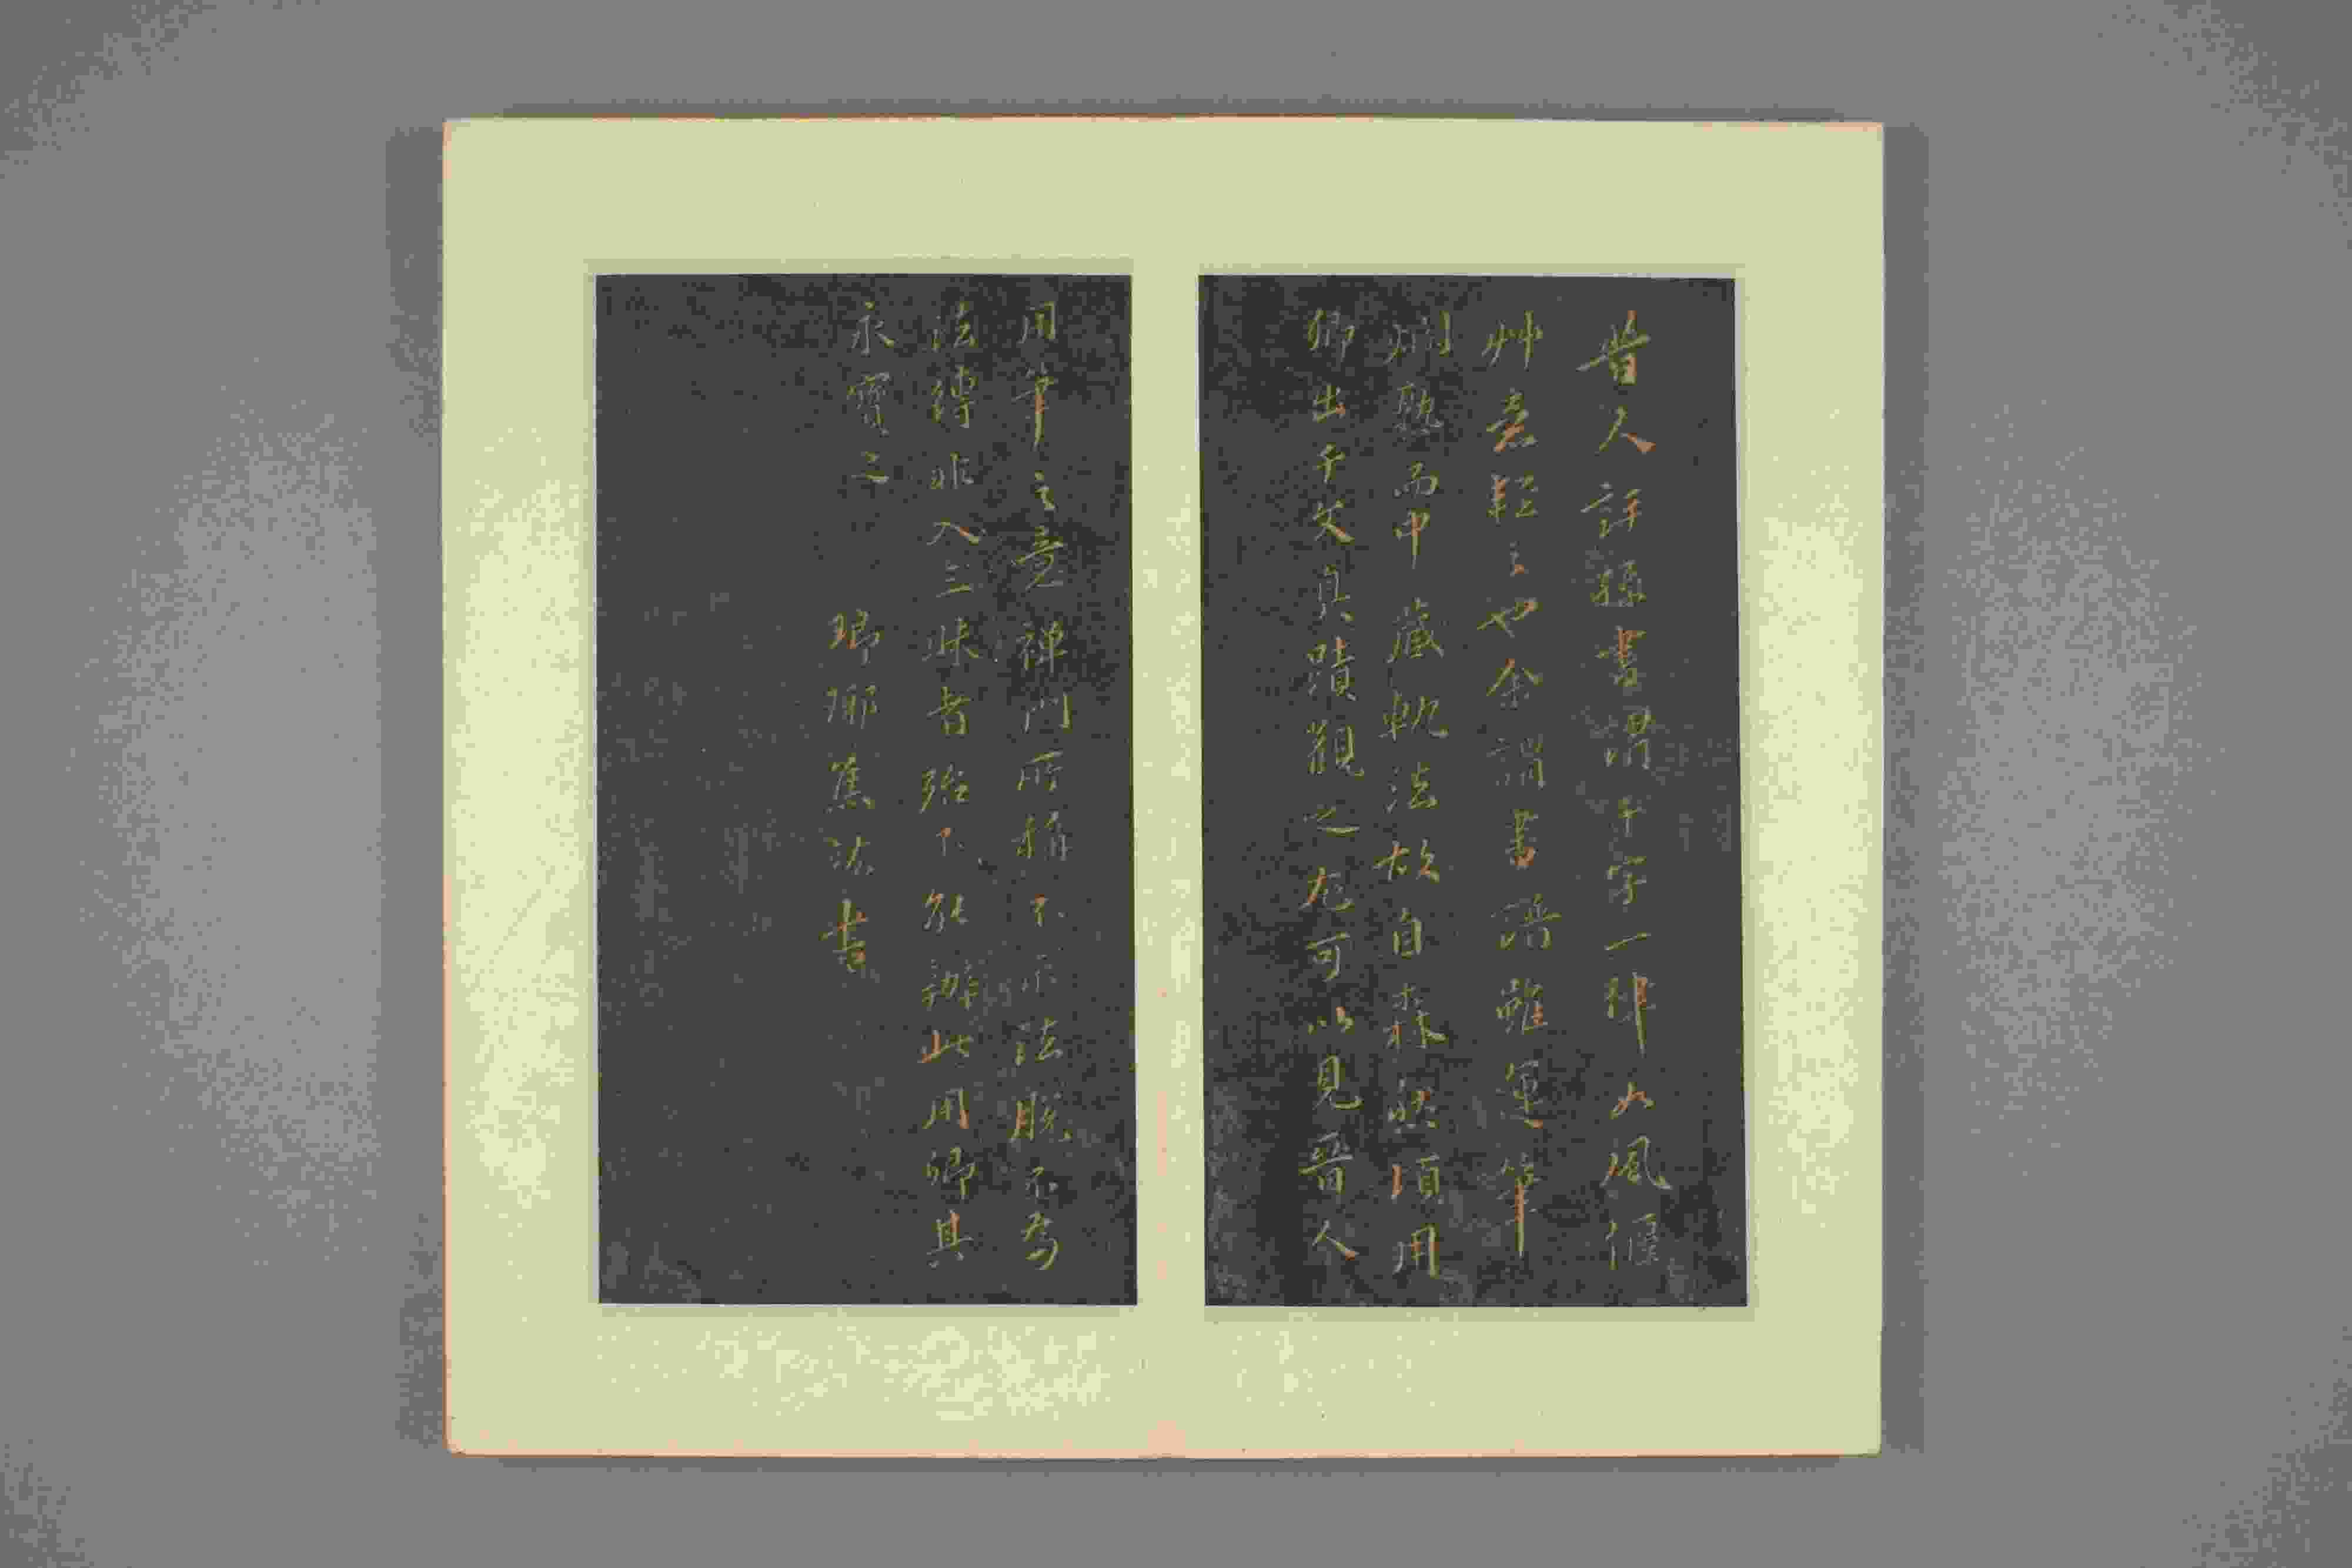 昔人評孫書謂千字一律如風偃
艸意輕之也余謂書譜雖運筆
爛熟而中藏軌法故自森然頃用
卿出千文真蹟觀之尤可以見晉人
用筆之意禪門所稱不求法脫不為
法縛非入三昧者殆不能辦此用卿其
永寶之
瑯琊焦竑書